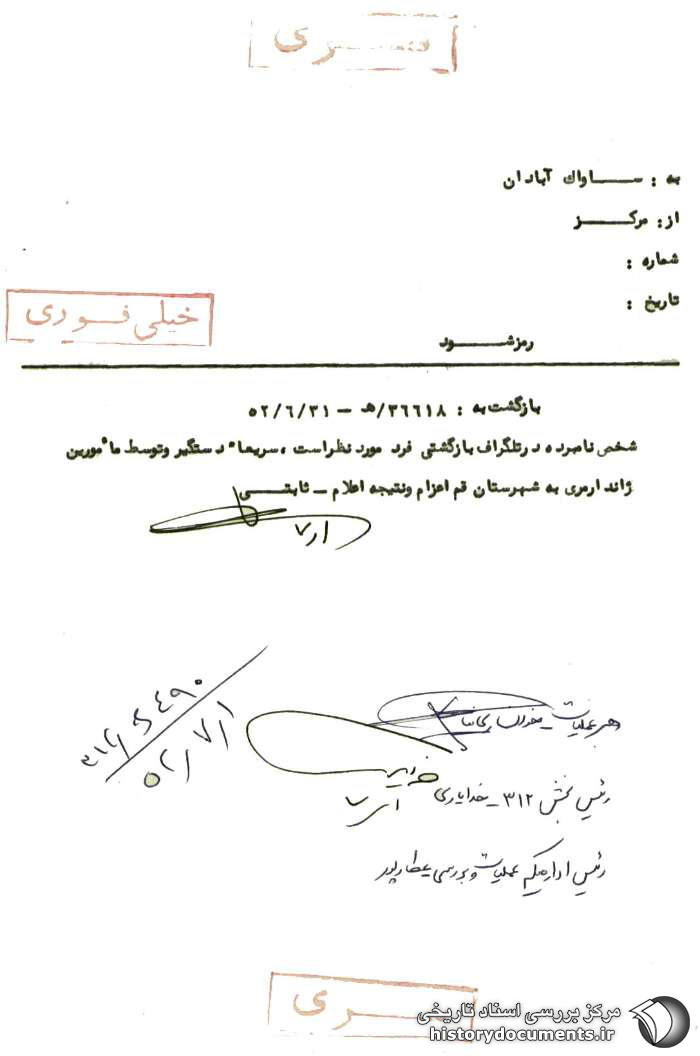 سری
به : ساواك آبادان
از : مرکز
شماره :
تاریخ :
خیلی فوری
رمز شود
بازگشت به : ۳۶۶۱۸/ﻫ - ۵۲/۶/۳۱
شخص نامبرده در تلگراف بازگشتی فرد مورد نظر است ، سریعا" دستگیر و توسط مأمورین
ژاندارمری به شهرستان قم اعزام و نتیجه اعلام - ثابتی
۷/۱
رهبر عملیات -
۵۲/۷/۱
رئیس بخش ۳۱۲ - خدایاری
رئیس اداره یکم عملیات و بررسی عطارپور
سری
مرکز بررسی اسناد تاریخی
historydocuments.ir